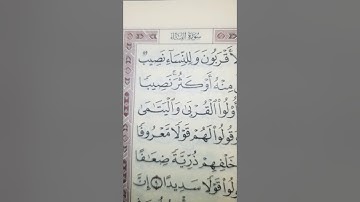 سورة النساء
لأقربون وللنساء نصيب
منه أو كثر نصيبا
أولوا القربى واليتمى
وقولوا لهم قولا معروفا
خلفهم ذرية ضعفا
ولوا قولا سديدا ٩ إن